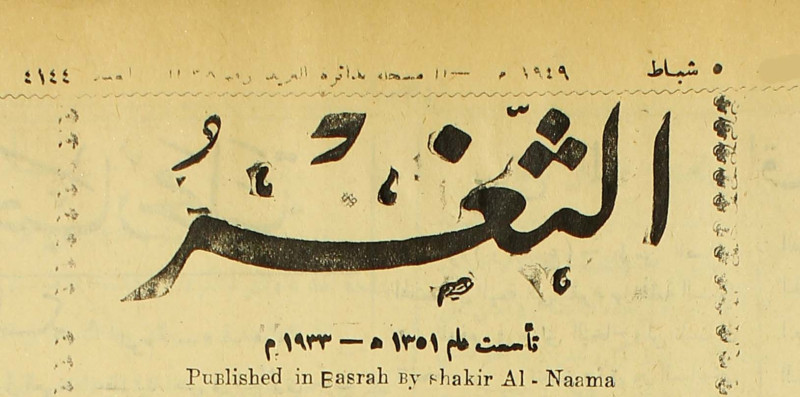 ٥ شباط ١٩٤٩ م — ١١ مسجلة بدائرة البريد ٤١٤٤
الثَّغْرُ
تأسست عام ١٣٥١ ه — ١٩٣٣ م
Published in Basrah By Shakir Al - Naama